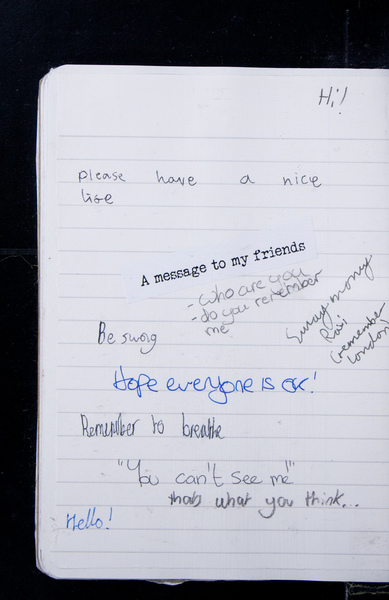 Hi!
please have a nice
life
A message to my friends
- who are you
- do you remember
me
money
Ravi
(remember
London)
Be swag
Hope everyone is ok!
Remember to breathe
"You can't see me"
thats what you think...
Hello!